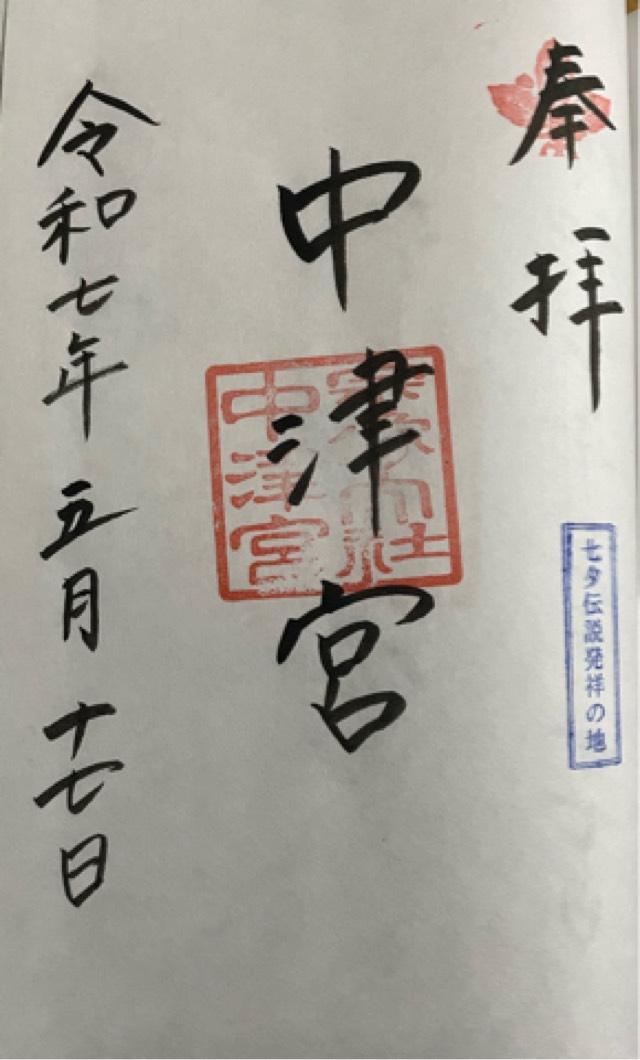 奉拝
七夕伝説発祥の地
中津宮
宗像大社
中津宮
令和七年五月十七日